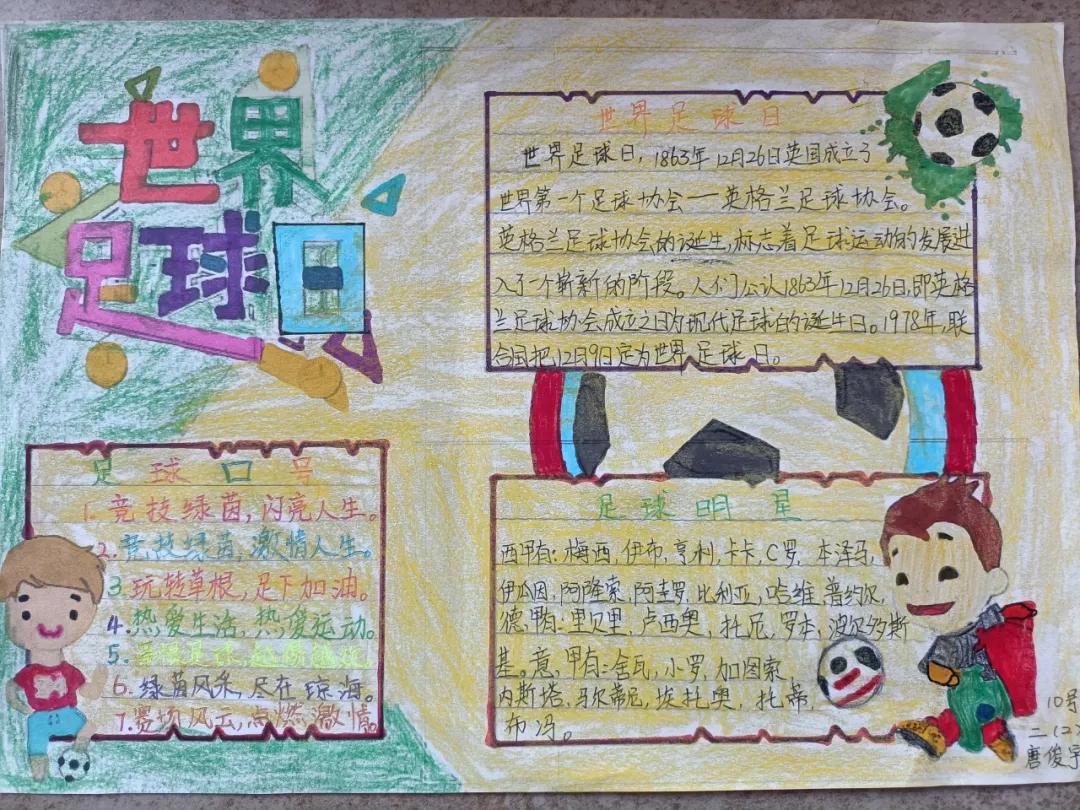 世界
足球日
世界足球日
世界足球日，1863年12月26日英国成立了
世界第一个足球协会——英格兰足球协会。
英格兰足球协会的诞生，标志着足球运动的发展进
入了一个崭新的阶段。人们公认1863年12月26日，即英格
兰足球协会成立之日为现代足球的诞生日。1978年，联
合国把12月9日定为世界足球日。
足球口号
1.竞技绿茵，闪亮人生。
2.竞技绿茵，激情人生。
3.玩转草根，足下加油。
4.热爱生活，热爱运动。
5.
6.绿茵风采，尽在琼海。
7.赛场风云，点燃激情。
足球明星
西甲有：梅西，伊布，亨利，卡卡，C罗，本泽马，
伊瓜因，阿隆索，阿圭罗，比利亚，哈维，普约尔，
德甲有：里贝里，卢西奥，托尼，罗本，波尔多斯
基。意甲有：舍瓦，小罗，加图索，
内斯塔，马尔蒂尼，埃托奥，托蒂，
布冯。
10号
二（2）
唐俊宇